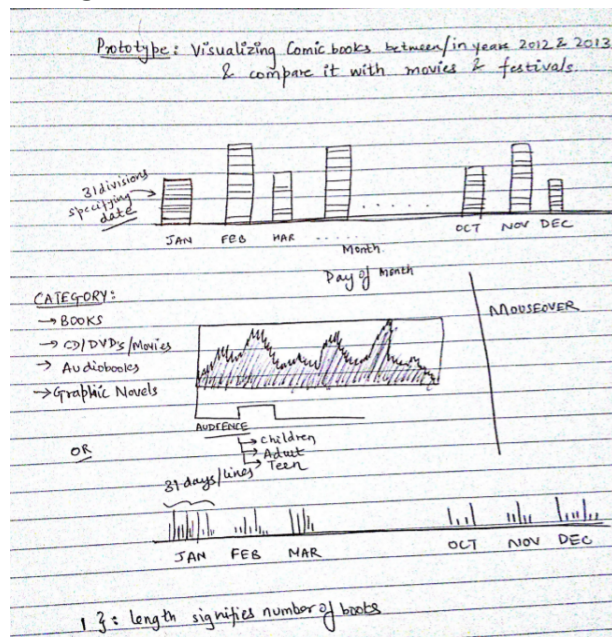 Prototype: Visualizing Comic books between/in years 2012 & 2013
& compare it with movies & festivals.
31 divisions
specifying
date
JAN FEB MAR ...... OCT NOV DEC
Month
Day of Month
CATEGORY:
→ BOOKS
→ CD/DVD's/Movies
→ Audiobooks
→ Graphic Novels
MOUSEOVER
AUDIENCE
→ children
→ Adult
→ Teen
OR
31 days/lines
JAN FEB MAR OCT NOV DEC
1 }: length signifies number of books